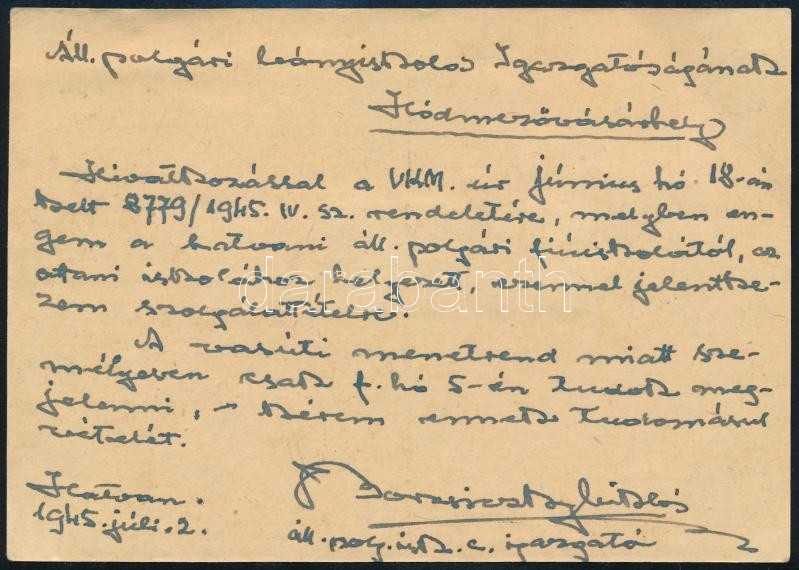 Áll. polgári leányiskola Igazgatóságának
Hódmezővásárhely
Hivatkozással a VKM. úr június hó 18-án
kelt 8779/1945. IV. sz. rendeletére, melyben en-
gem a hatvani áll. polgári fiúiskolától, az
ottani iskolához helyezett, ezennel jelentke-
zem szolgálattételre.
A vasúti menetrend miatt sze-
mélyesen csak f. hó 5-én tudok meg-
jelenni, – kérem ennek tudomásul
vételét.
Hatvan.
1945. júli. 2.
áll. polg. isk. c. igazgató
darabanth